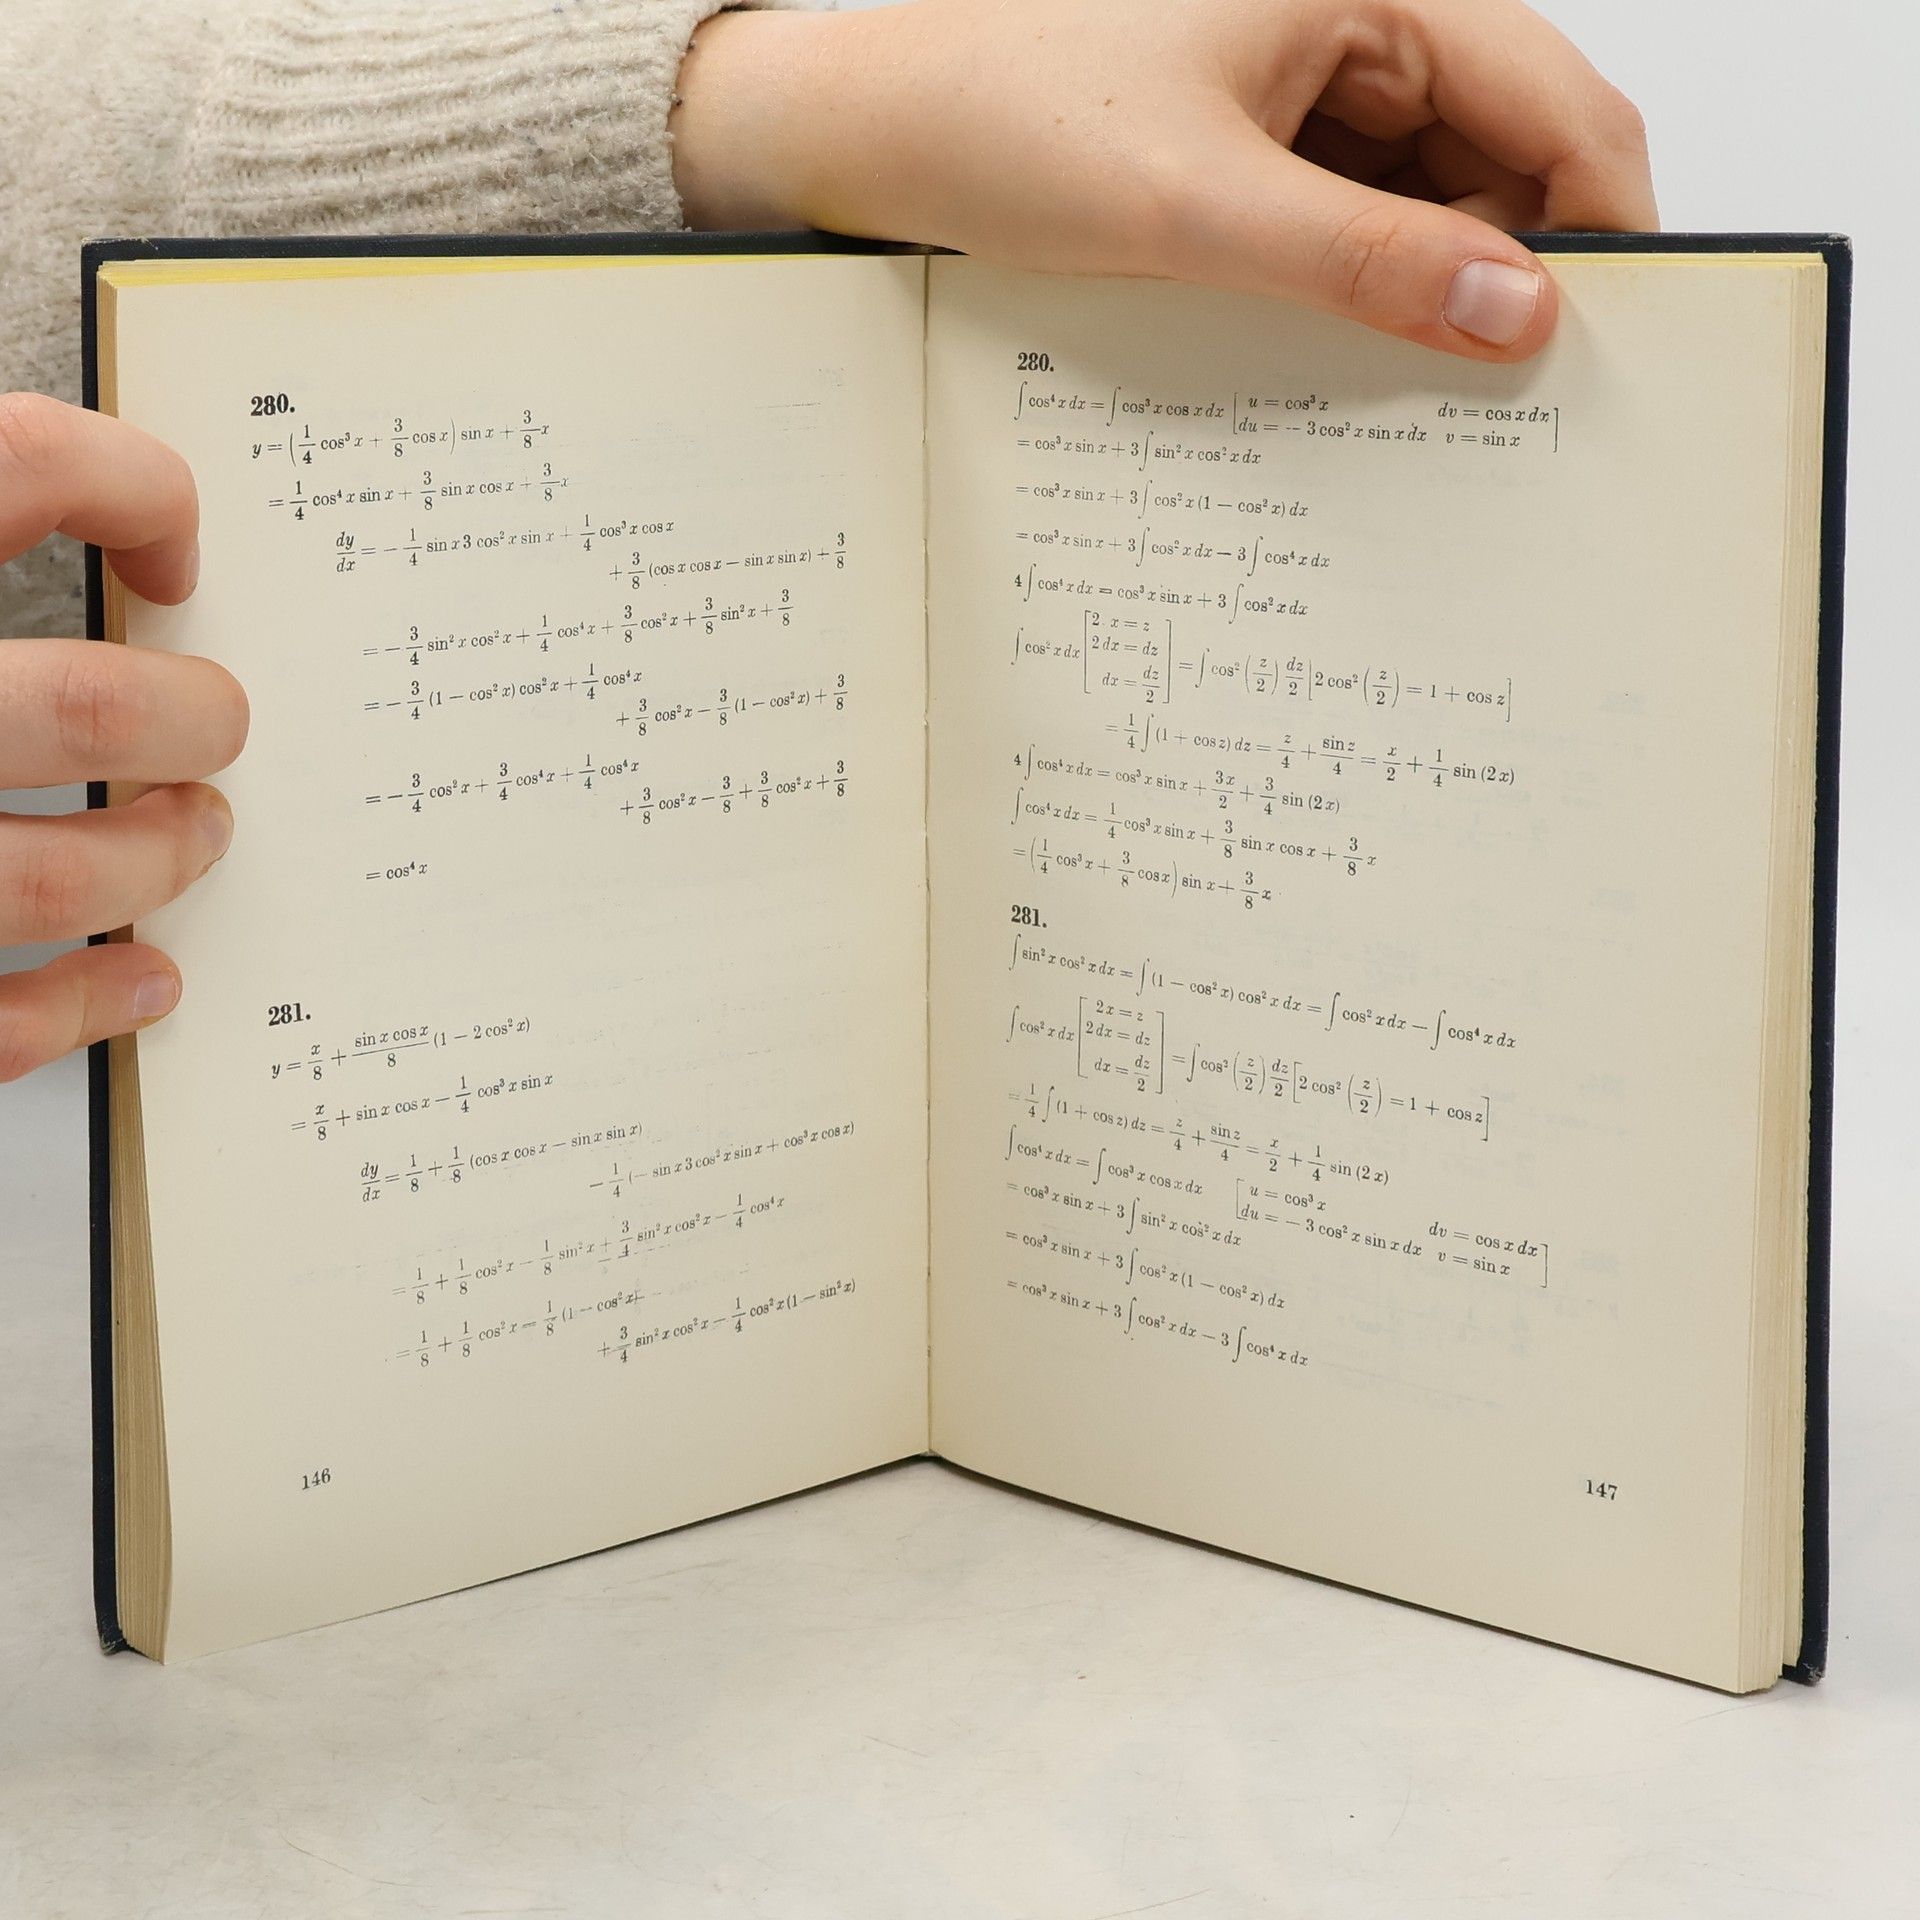 280.
y = (1/4 cos³ x + 3/8 cos x) sin x + 3/8 x
= 1/4 cos⁴ x sin x + 3/8 sin x cos x + 3/8 x
dy/dx = − 1/4 sin x 3 cos² x sin x + 1/4 cos³ x cos x
+ 3/8 (cos x cos x − sin x sin x) + 3/8
= − 3/4 sin² x cos² x + 1/4 cos⁴ x + 3/8 cos² x + 3/8 sin² x + 3/8
= − 3/4 (1 − cos² x) cos² x + 1/4 cos⁴ x
+ 3/8 cos² x − 3/8 (1 − cos² x) + 3/8
= − 3/4 cos² x + 3/4 cos⁴ x + 1/4 cos⁴ x
+ 3/8 cos² x − 3/8 + 3/8 cos² x + 3/8
= cos⁴ x
281.
y = x/8 + sin x cos x/8 (1 − 2 cos² x)
= x/8 + sin x cos x − 1/4 cos³ x sin x
dy/dx = 1/8 + 1/8 (cos x cos x − sin x sin x)
− 1/4 (− sin x 3 cos² x sin x + cos³ x cos x)
= 1/8 + 1/8 cos² x − 1/8 sin² x + 3/4 sin² x cos² x − 1/4 cos⁴ x
= 1/8 + 1/8 cos² x = 1/8 (1 − cos² x)
+ 3/4 sin² x cos² x − 1/4 cos² x (1 − sin² x)
146
280.
∫ cos⁴ x dx = ∫ cos³ x cos x dx [u = cos³ x dv = cos x dx
du = − 3 cos² x sin x dx v = sin x]
= cos³ x sin x + 3 ∫ sin² x cos² x dx
= cos³ x sin x + 3 ∫ cos² x (1 − cos² x) dx
= cos³ x sin x + 3 ∫ cos² x dx − 3 ∫ cos⁴ x dx
4 ∫ cos⁴ x dx = cos³ x sin x + 3 ∫ cos² x dx
∫ cos² x dx [2 x = z
2 dx = dz
dx = dz/2] = ∫ cos² (z/2) dz/2 [2 cos² (z/2) = 1 + cos z]
= 1/4 ∫ (1 + cos z) dz = z/4 + sin z/4 = x/2 + 1/4 sin (2 x)
4 ∫ cos⁴ x dx = cos³ x sin x + 3x/2 + 3/4 sin (2 x)
∫ cos⁴ x dx = 1/4 cos³ x sin x + 3/8 sin x cos x + 3/8 x
= (1/4 cos³ x + 3/8 cos x) sin x + 3/8 x
281.
∫ sin² x cos² x dx = ∫ (1 − cos² x) cos² x dx = ∫ cos² x dx − ∫ cos⁴ x dx
∫ cos² x dx [2x = z
2 dx = dz
dx = dz/2] = ∫ cos² (z/2) dz/2 [2 cos² (z/2) = 1 + cos z]
= 1/4 ∫ (1 + cos z) dz = z/4 + sin z/4 = x/2 + 1/4 sin (2 x)
∫ cos⁴ x dx = ∫ cos³ x cos x dx [u = cos³ x dv = cos x dx
du = − 3 cos² x sin x dx v = sin x]
= cos³ x sin x + 3 ∫ sin² x cos² x dx
= cos³ x sin x + 3 ∫ cos² x (1 − cos² x) dx
= cos³ x sin x + 3 ∫ cos² x dx − 3 ∫ cos⁴ x dx
147